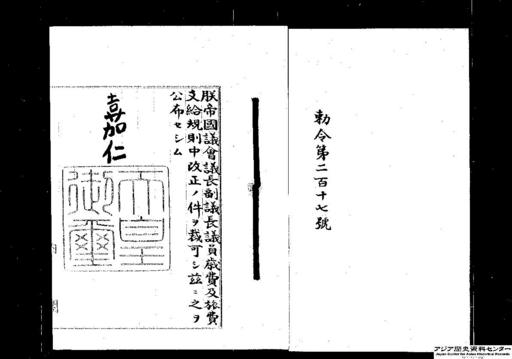 勅令第二百十七號
朕帝國議會議長副議長議員歲費及旅費
支給規則中改正ノ件ヲ裁可シ茲ニ之ヲ
公布セシム
嘉仁
天皇
御璽
アジア歴史資料センター
Japan Center for Asian Historical Records